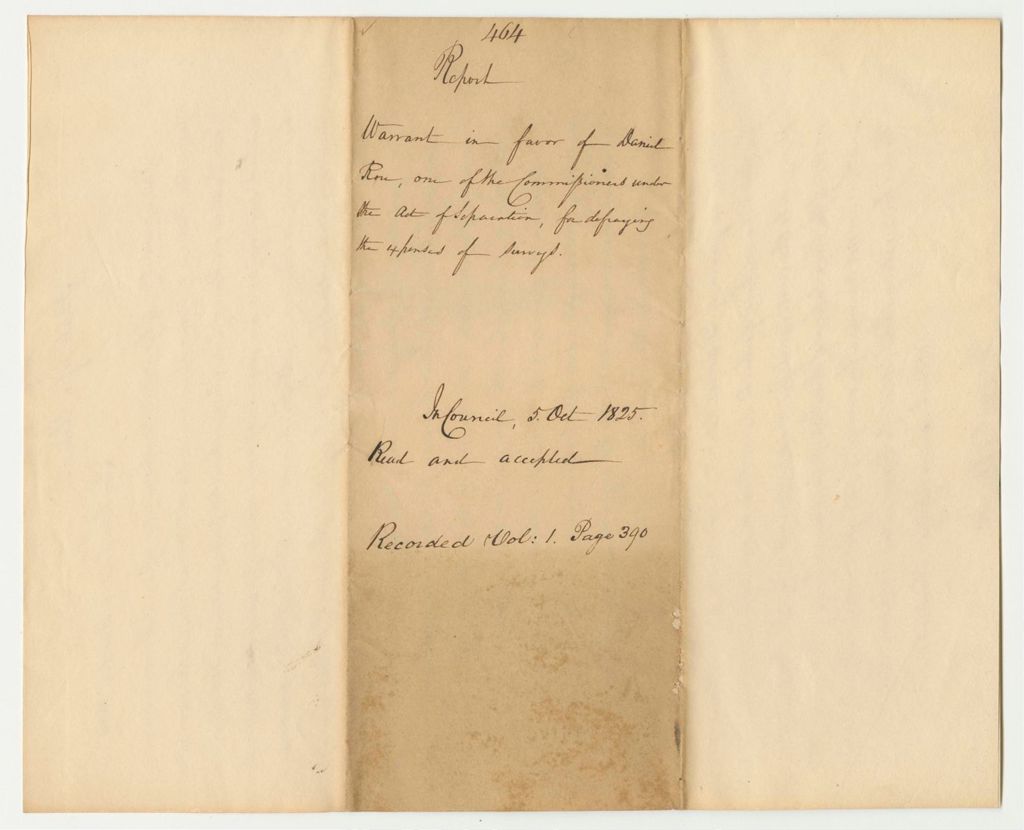 464
Report
Warrant in favor of Daniel
Rose, one of the Commissioners under
the Act of Separation, for defraying
the expenses of surveys.
In Council, 5. Oct 1825.
Read and accepted
Recorded Vol: 1. Page 390